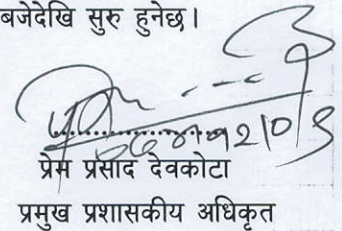 बजेदेखि सुरु हुनेछ।
प्रेम प्रसाद देवकोटा
प्रमुख प्रशासकीय अधिकृत